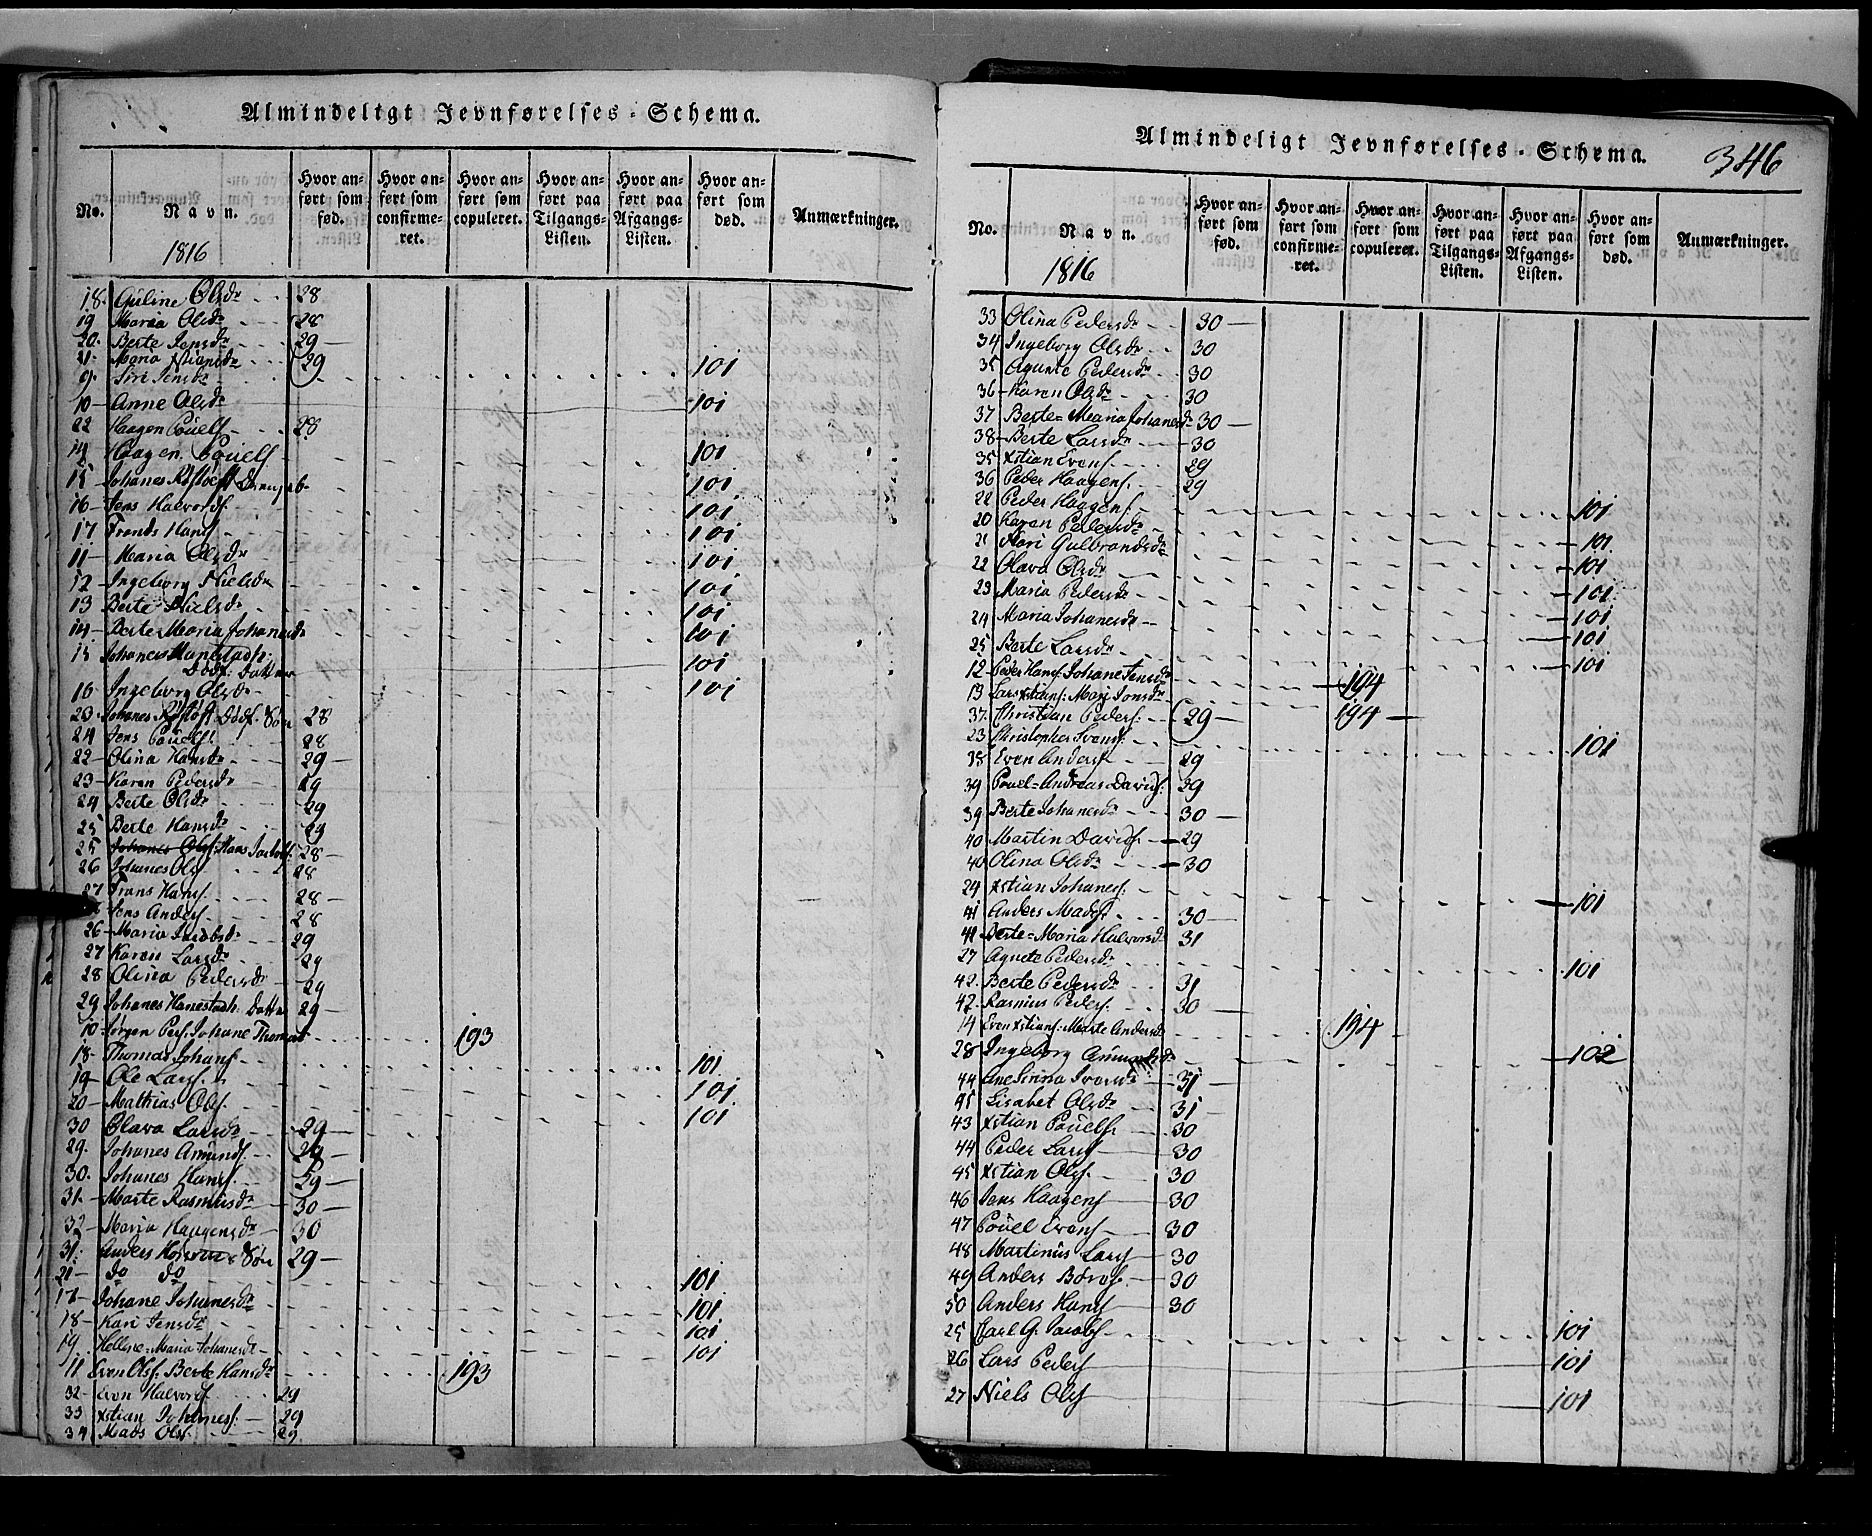 Almindeligt Jevnførelses-Schema.
No. Navn. Hvor anført som fød. Hvor anført som confirmeret. Hvor anført søm copuleret. Hvor anført paa Tilgangs-Listen. Hvor anført paa Afgangs-Listen. Hvor anført som død. Anmærkninger.
1816
18. Guline Olsdr 28
19 Maria Olsdr 28
20. Berte Jensdr 29
21. Maria Xstiansdr 29
9. Siri Jensdr 101
10 Anne Olsdr 101
22 Haagen Pouels. 28
14 Haagen Pouels. 101
15 Johanes 101
16 Jens Halvords. 101
17 Trends Hans. 101
11 Maria Olsdr 101
12 Ingeborg Nielsdr 101
13 Berte Nielsdr 101
14 Berte Maria Johanesdr 101
15 Johanes Hanestadh:
Dødf: Datter 101
16 Ingeborg Olsdr 101
23. Johanes Dødf. Søn 28
24 Jens Pouels. 28
22 Olina Hansdr 29
23 Karen Pedersdr 29
24 Berte Olsdr 29
25 Berte Hansdr 29
25 Johanes Ols. Hans 28
26 Johanes Ols. 28
27 Frans Hans. 28
Jens Anders. 28
26 Maria Jacobsdr 29
27 Karen Larsdr 29
28 Olina Pedersdr 29
29 Johanes Hanestadh. Datter 29
10 Jørgen Pers. Johane Thomasd 193
18 Thomas Johans. 101
19 Ole Lars. 101
20 Mathias Ols. 101
30 Olava Larsdr 29
29. Johanes Amunds. 29
30. Johanes Hans. 29
31. Marte Rasmusdr 30
32 Maria Haagensdr 30
31. Anders Søn 29
21 do do 101
17 Johane Johanesdr 101
18 Kari Jensdr 101
19. Hellene-Maria Johanesdr 101
11 Even Ols. Berte Hansdr 193
32 Even Halvords. 29
33 Xstian Johanes. 29
34 Mads Ols. 29
Almindeligt Jevnførelses-Schema. 346
No. Navn. Hvor anført som fød. Hvor anført som confirmeret. Hvor anført som copuleret. Hvor anført paa Tilgangs-Listen. Hvor anført paa Afgangs-Listen. Hvor anført som død. Anmærkninger.
1816
33 Olina Pedersdr 30
34 Ingeborg Olsdr 30
35 Agnete Pedersdr 30
36 Karen Olsdr 30
37 Berte-Maria Johanesdr 30
38 Berte Larsdr 30
35 Xstian Evens. 29
36 Peder Haagens. 29
22 Peder Haagens. 101
20 Karen Pedersdr 101
21 Kari Gulbrandsdr 101
22 Olava Olsdr 101
23 Maria Pedersdr 101
24 Maria Johanesdr 101
25 Berte Larsdr 101
12 Peder Hans. Johane Jensdr 194
13 Lars Xstians. Mari Jonsdr 194
37. Christian Peders. 29
23 Christopher Ivers. 101
38 Even Anders. 29
39 Pouel-Andreas Davids. 39
39 Berte Johanesdr 30
40 Martin Davids. 29
40 Olina Olsdr 30
24 Xstian Johanes. 101
41 Anders Mads. 30
41 Berte-Maria Halvorsdr 31
27 Agnete Pedersdr 101
42. Berte Pedersdr 31
42. Rasmus Peders. 30
14 Even Xstians. Marte Andersdr 194
28 Ingeborg Amundsdr 102
44 Ane Sirina Iversdr 31
45 Lisabet Olsdr 31
43 Xstian Pouels. 30
44 Peder Lars. 30
45 Xstian Ols. 30
46 Jens Haagens. 30
47 Pouel Evens. 30
48 Martinus Lars. 30
49 Anders Børres. 30
50 Anders Hans. 30
25 Carl G. Jacobs. 101
26 Lars Peders. 101
27 Niels Ols. 101